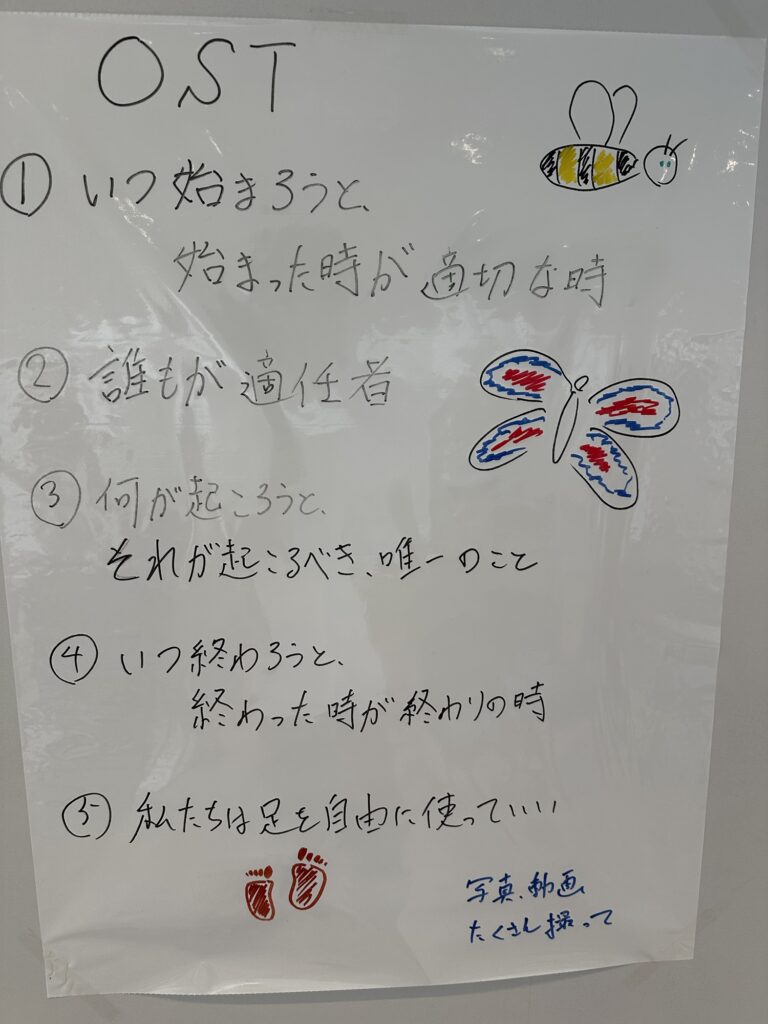 OST
① いつ始まろうと、
始まった時が適切な時
② 誰もが適任者
③ 何が起ころうと、
それが起こるべき、唯一のこと
④ いつ終わろうと、
終わった時が終わりの時
⑤ 私たちは足を自由に使っていい
写真、動画
たくさん撮って